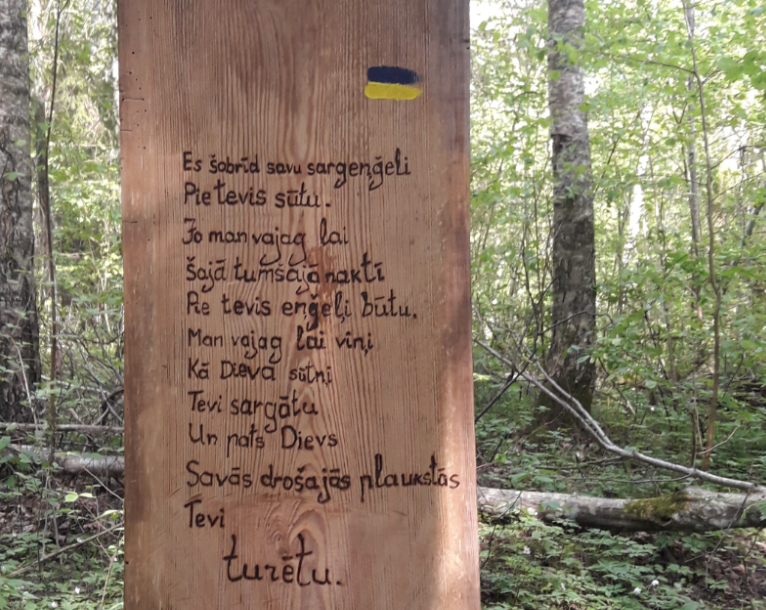 Es šobrīd savu sargeņģeli
Pie tevis sūtu.
Jo man vajag lai
šajā tumšajā naktī
Pie tevis eņģeļi būtu.
Man vajag lai viņi
Kā Dieva sūtņi
Tevi sargātu
Un pats Dievs
Savās drošajās plaukstās
Tevi
turētu.